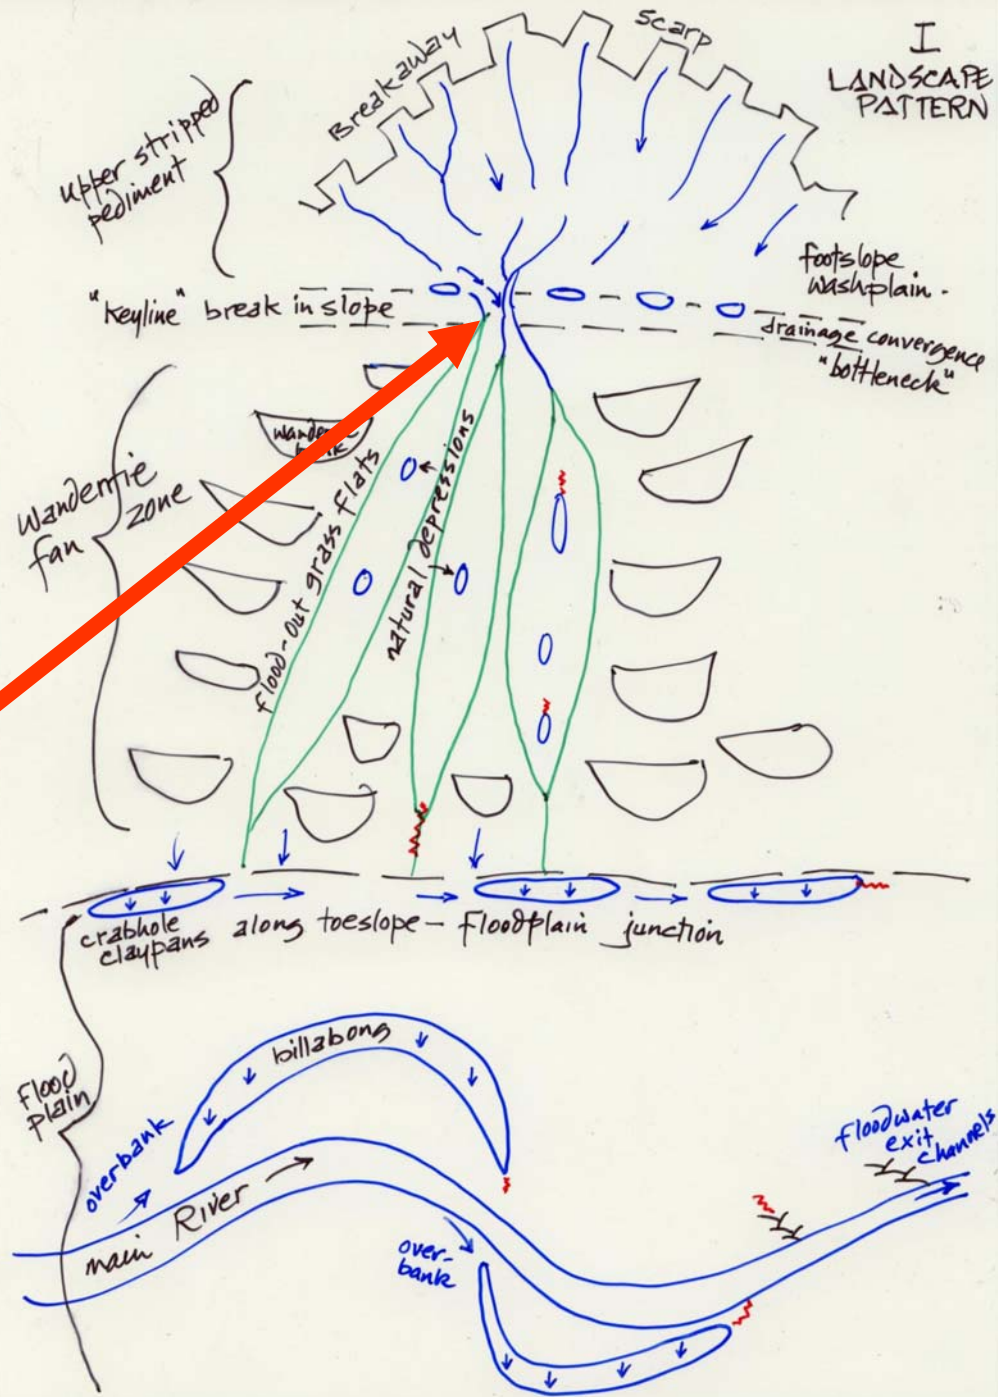 I
LANDSCAPE
PATTERN
Breakaway
Scarp
Upper stripped
pediment
footslope
washplain.
"Keyline" break in slope
drainage convergence
"bottleneck"
wanderrie
bank
Wanderrie
fan zone
flood-out grass flats
natural depressions
crabhole
claypans along toeslope - floodplain junction
billabong
flood
plain
overbank
main River
over-
bank
floodwater
exit
channels